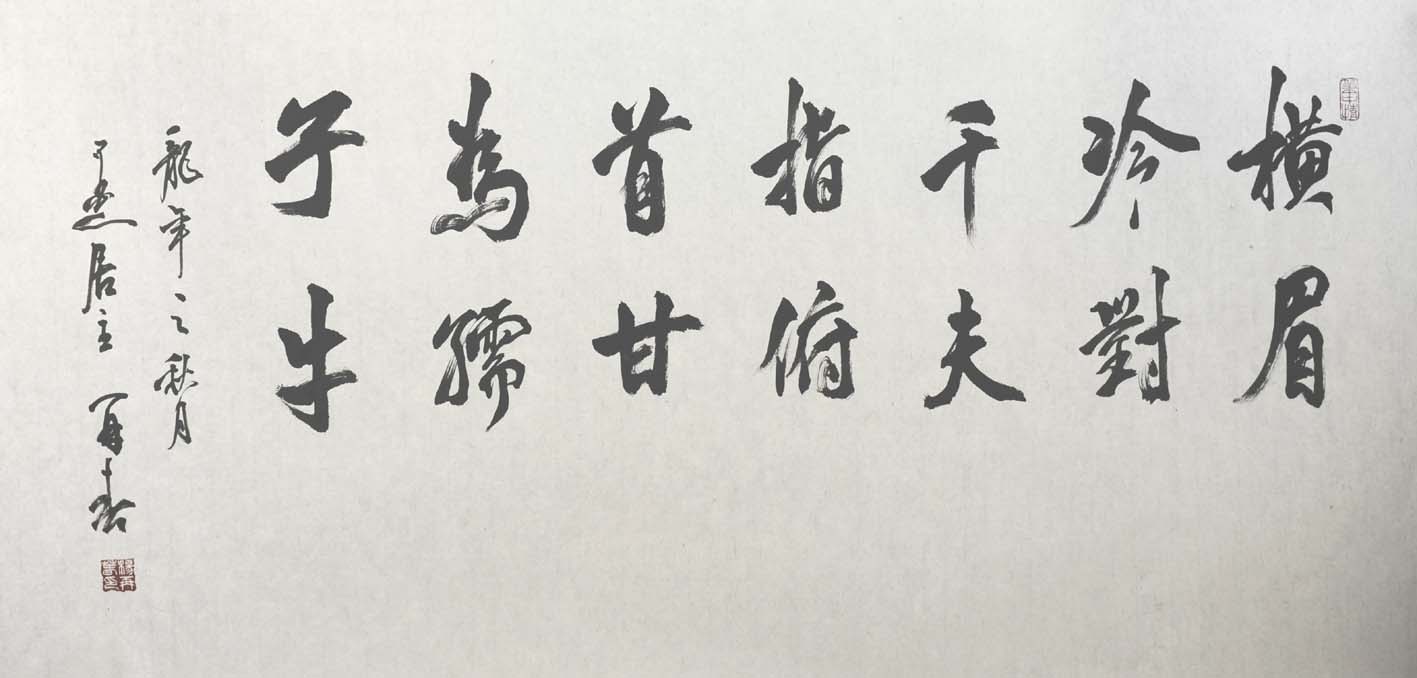 横眉
冷對
千夫
指俯
首甘
為孺
子牛
龍年之秋月
居主 再春